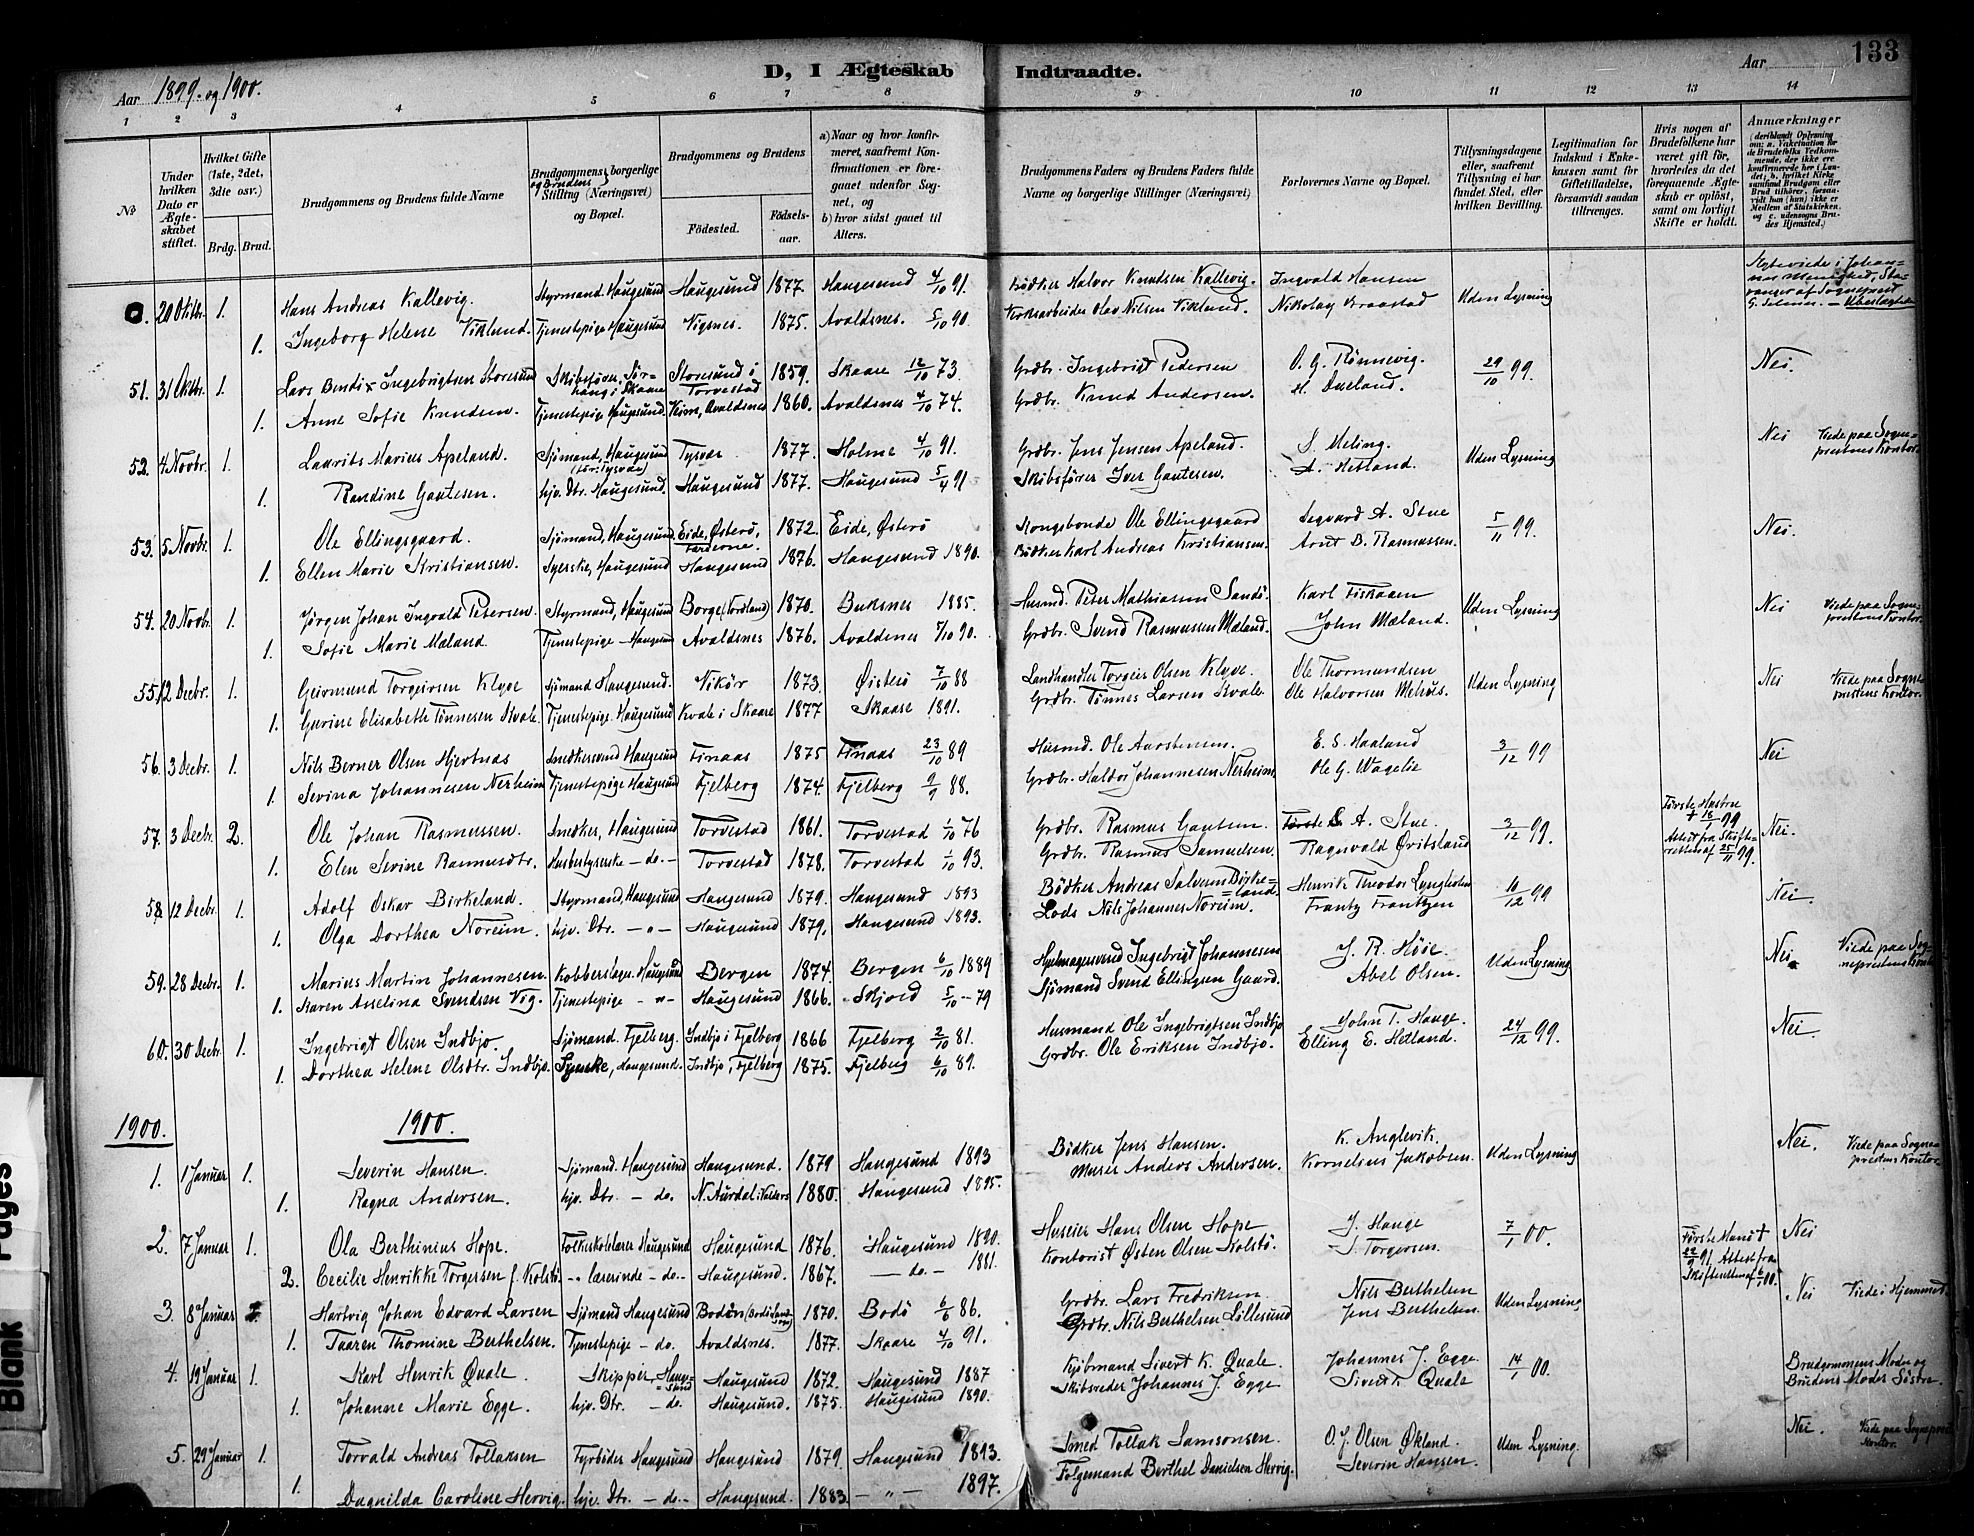 Aar 1899. og 1900.
D, I Ægteskab Indtraadte.
Aar 133
1 2 3 4 5 6 7 8 9 10 11 12 13 14
No
Under hvilken Dato er Ægteskabet stiftet.
Hvilket Gifte (1ste, 2det, 3die osv.)
Brdg. Brud.
Brudgommens og Brudens fulde Navne
Brudgommens og Brudens borgerlige Stilling (Næringsvei) og Bopæl.
Brudgommens og Brudens
Födested. Födselsaar.
a) Naar og hvor konfirmeret, saafremt Konfirmationen er foregaaet udenfor Sognet, og
b) hvor sidst gaaet til Alters.
Brudgommens Faders og Brudens Faders fulde Navne og borgerlige Stillinger (Næringsvei)
Forlovernes Navne og Bopæl.
Tillysningsdagene eller, saafremt Tillysning ei har fundet Sted, efter hvilken Bevilling.
Legitimation for Indskud i Enkekassen samt for Giftetilladelse, forsaavidt saadan tiltrænges.
Hvis nogen af Brudefolkene har været gift før, hvorledes da det foregaaende Ægteskab er oplöst, samt om lovligt Skifte er holdt.
Anmærkninger
(deriblandt Oplysning om: a. Vakcination for de Brudefolks Vedkommende, der ikke ere konfirmerede her i Landet; b. hvilket Kirkesamfund Brudgom eller Brud tilhører, forsaavidt han (hun) ikke er Medlem af Statskirken, og c. udensogns Brudes Hjemsted.)
20 Oktbr. 1. Hans Andreas Kallevig. Styrmand, Haugesund Haugesund 1877. Haugesund 4/10 91. Bödker Halvor Knudsen Kallevig. Ingvald Hansen Uden Lysning
1. Ingeborg Helene Viklund. Tjenestepige Haugesund Vigsnes. 1875. Avaldsnes. 5/10 90. Olav Nilsen Viklund. Nikolay Braastad
51. 31 Oktbr. 1. Lars Bendix Ingebrigtsen Storesund Storesund i Torvestad 1859. Skaare 12/10 73. Grdbr. Ingebrigt Pedersen O. G. Rönnevig. 29/10 99. Nei.
1. Anne Sofie Knudsen. Tjenestepige Haugesund. Avaldsnes 1860. Avaldsnes 4/10 74. Grdbr. Knud Andersen.
52. 4 Novbr. 1. Laurits Marius Apeland. Sjömand, Haugesund (før: Tysvær) Tysvær 1877. Holme 4/10 91. Grdbr. Jens Jensen Apeland. S. Meling. Uden Lysning Nei Viede paa Sogneprestens Kontor.
1. Randine Gautesen. hjv. Dtr. Haugesund. Haugesund 1877. Haugesund 5/4 91 Skibsfører Iver Gautesen. A. Hetland.
53. 5 Novbr. 1. Ole Ellingsgaard. Sjömand, Haugesund Eide, Österö, Færöerne. 1872. Eide, Österö Kongsbonde Ole Ellingsgaard Segvard A. Stue 5/11 99. Nei.
1. Ellen Marie Kristiansen. Syerske, Haugesund Haugesund 1876. Haugesund 1890. Bödker Karl Andreas Kristiansen. Arnt B. Rasmussen.
54. 20 Novbr. 1. Jørgen Johan Ingvald Petersen. Styrmand, Haugesund Borge (Nordland) 1870. Buksnes 1885. Husmd. Peter Mathiassen Sandö. Karl Fiskaaen Uden Lysning Nei Viede paa Sogneprestens Kontor.
1. Sofie Marie Mæland. Tjenestepige Haugesund Avaldsnes 1876. Avaldsnes 5/10 90. Grdbr. Svend Rasmussen Mæland. John Mæland.
55. 2 Decbr. 1. Geirmund Torgeirsen Klyve Sjömand Haugesund. Vikör 1873. Öistesö 7/10 88 Landhandler Torgeir Olsen Klyve. Ole Thormundsen Uden Lysning Nei Viede paa Sogneprestens Kontor.
1. Gurine Elisabeth Tönnesen Kvale. Tjenestepige. Haugesund Kvale i Skaare 1877 Skaare 1891. Grdbr. Tönnes Larsen Kvale. Ole Halvorsen Mehus.
56. 3 Decbr. 1. Nils Berner Olsen Hjertnas Snedkersvend Haugesund Finaas 1875 Finaas 23/10 89 Husmd. Ole Aarstensen. E. S. Haaland 3/12 99 Nei
1. Sevina Johannesen Nerheim Tjenestepige Haugesund Fjelberg 1874. Fjelberg 9/9 88. Grdbr. Haldor Johannesen Nerheim Ole G. Wagelie
57. 3 Decbr. 2. Ole Johan Rasmussen. Snedker, Haugesund Torvestad 1861. Torvestad 1/10 76 Grdbr. Rasmus Gautsen. S. A. Stue. 3/12 99. Første Hustru † 18/ 99 Attest fra Skifteretten af 25/11 99. Nei.
1. Elen Sevine Rasmusdtr. Husbestyrerske - do. - Torvestad 1878. Torvestad 1/10 93. Grdbr. Rasmus Samuelsen. Ragnvald Øritsland
58. 12 Decbr. 1. Adolf Oskar Birkeland. Styrmand, Haugesund Haugesund 1879. Haugesund 1893 Bödker Andreas Salvesen Birkeland. Henrik Theodor Lyngholm 10/12 99 Nei.
1. Olga Dorthea Noreim. hjv. Dtr. - " - Haugesund 1879. Haugesund 1893. Lods Nils Johannes Noreim. Frantz Frantzen
59. 28 Decbr. 1. Marius Martin Johannesen. Kobberslager. Haugesund Bergen 1874. Bergen 6/10 1889 Hjulmagersvend Ingebrigt Johannesen J. R. Höie. Uden Lysning Nei. Viede paa Sogneprestens Kontor
1. Karen Asselina Svendsen Vig. Tjenestepige - " - Haugesund 1866. Skjold 5/10 - 79 Sjömand Svend Ellingsen Gaard. Abel Olsen.
60. 30 Decbr. 1. Ingebrigt Olsen Indbjo. Sjömand. Fjelberg. Indbjo i Fjelberg 1866 Fjelberg 2/10 81. Husmand Ole Ingebrigtsen Indbjo John T. Hauge. 24/12 99. Nei
1. Dorthea Helene Olsdtr. Indbjo. Syerske, Haugesund. Indbjo, Fjelberg 1875. Fjelberg 6/10 89. Grdbr. Ole Eriksen Indbjo. Elling E. Hetland.
1900. 1900.
1. 1 Januar 1. Severin Hansen. Sjömand. Haugesund Haugesund. 1879 Haugesund 1893 Bödker Jens Hansen. K. Anglevik. Uden Lysning Nei. Viede paa Sogneprestens Kontor.
1. Ragna Andersen. hjv. Dtr. - do. N. Aurdal i Valders 1880. Haugesund 1895. Murer Anders Andersen. Kornelius Jakobsen.
2. 7 Januar 1. Ola Berthinius Hope. Folkeskolelærer Haugesund Haugesund 1876. Haugesund 1890. Huseier Hans Olsen Hope J. Hauge 7/1 00. Første Mand † 22/9 91, Attest fra Skifteretten af 6/1 00. Nei
2. Cecilie Henrikke Torgersen f. Kolstö -"- lærerinde - do. - Haugesund. 1867. - do. - 1881. Kontorist Østen Olsen Kolstö. J. Torgersen.
3. 8 Januar Hartvig Johan Edvard Larsen Sjömand Haugesund 1870. Bodö 6/6 86. Grdbr. Lars Fredriksen. Nils Berthelsen Uden Lysning Nei Viede i Hjemmet.
1. Taaren Thomine Berthelsen. Tjenestepige - do. Avaldsnes. 1877. Skaare 4/10 91. Grdbr. Nils Berthelsen Lillesund Jens Berthelsen.
4. 19 Januar 1. Karl Henrik Quale. Skipper, Haugesund Haugesund 1872. Haugesund 1887 Kjöbmand Sivert K. Quale. Johannes J. Egge. 14/1 00. Brudgommens Moder og Brudens Moder Söstre.
1. Johanne Marie Egge. hjv. Dtr. - do. Haugesund. 1875. Haugesund 1890. Skibsreder Johannes J. Egge Sivert K. Quale
5. 29 Januar 1. Torvald Andreas Tollaksen Fyrböder Haugesund Haugesund 1879. Haugesund 1893. Smed Tollak Samsonsen. O. J. Olsen Økland. Uden Lysning. Nei. Viede paa Sogneprest. Kontor.
1. Dagnilda Caroline Hervig. hjv. Dtr. - do. - Haugesund. 1883. - " - 1897. Følgemand Berthel Danielsen Hervig. Severin Hansen.
Blank Pages